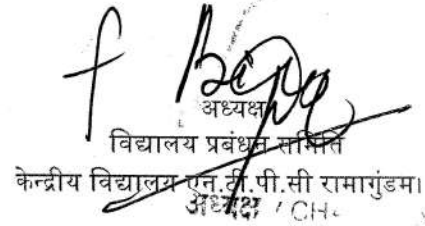 अध्यक्ष
विद्यालय प्रबंधन समिति
केन्द्रीय विद्यालय एन.टी.पी.सी रामागुंडम।
अध्यक्ष / CH